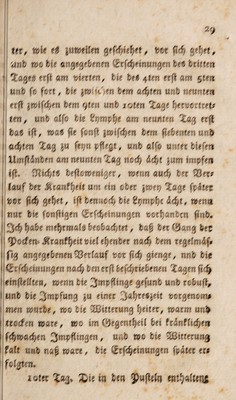 29
ter, wie es zuweilen geschiehet, vor sich gehet,
und wo die angegebenen Erscheinungen des dritten
Tages erst am vierten, die des 4ten erst am 5ten
und so fort, die zwischen dem achten und neunten
erst zwischen dem 9ten und 10ten Tage hervortret=
ten, und also die Lymphe am neunten Tag erst
das ist, was sie sonst zwischen dem siebenten und
achten Tag zu seyn pflegt, und also unter diesen
Umständen am neunten Tag noch ächt zum impfen
ist. Nichts destoweniger, wenn auch der Ver=
lauf der Krankheit um ein oder zwey Tage später
vor sich gehet, ist dennoch die Lymphe ächt, wenn
nur die sonstigen Erscheinungen vorhanden sind.
Ich habe mehrmals beobachtet, daß der Gang der
Pocken=Krankheit viel ehender nach dem regelmäs=
sig angegebenen Verlauf vor sich gienge, und die
Erscheinungen nach den erst beschriebenen Tagen sich
einstellten, wenn die Impflinge gesund und robust,
und die Impfung zu einer Jahrszeit vorgenom=
men wurde, wo die Witterung heiter, warm und
trocken ware, wo im Gegentheil bei kränklichen
schwachen Impflingen, und wo die Witterung
kalt und naß ware, die Erscheinungen später er=
folgten.
10ter Tag. Die in den Pusteln enthaltene